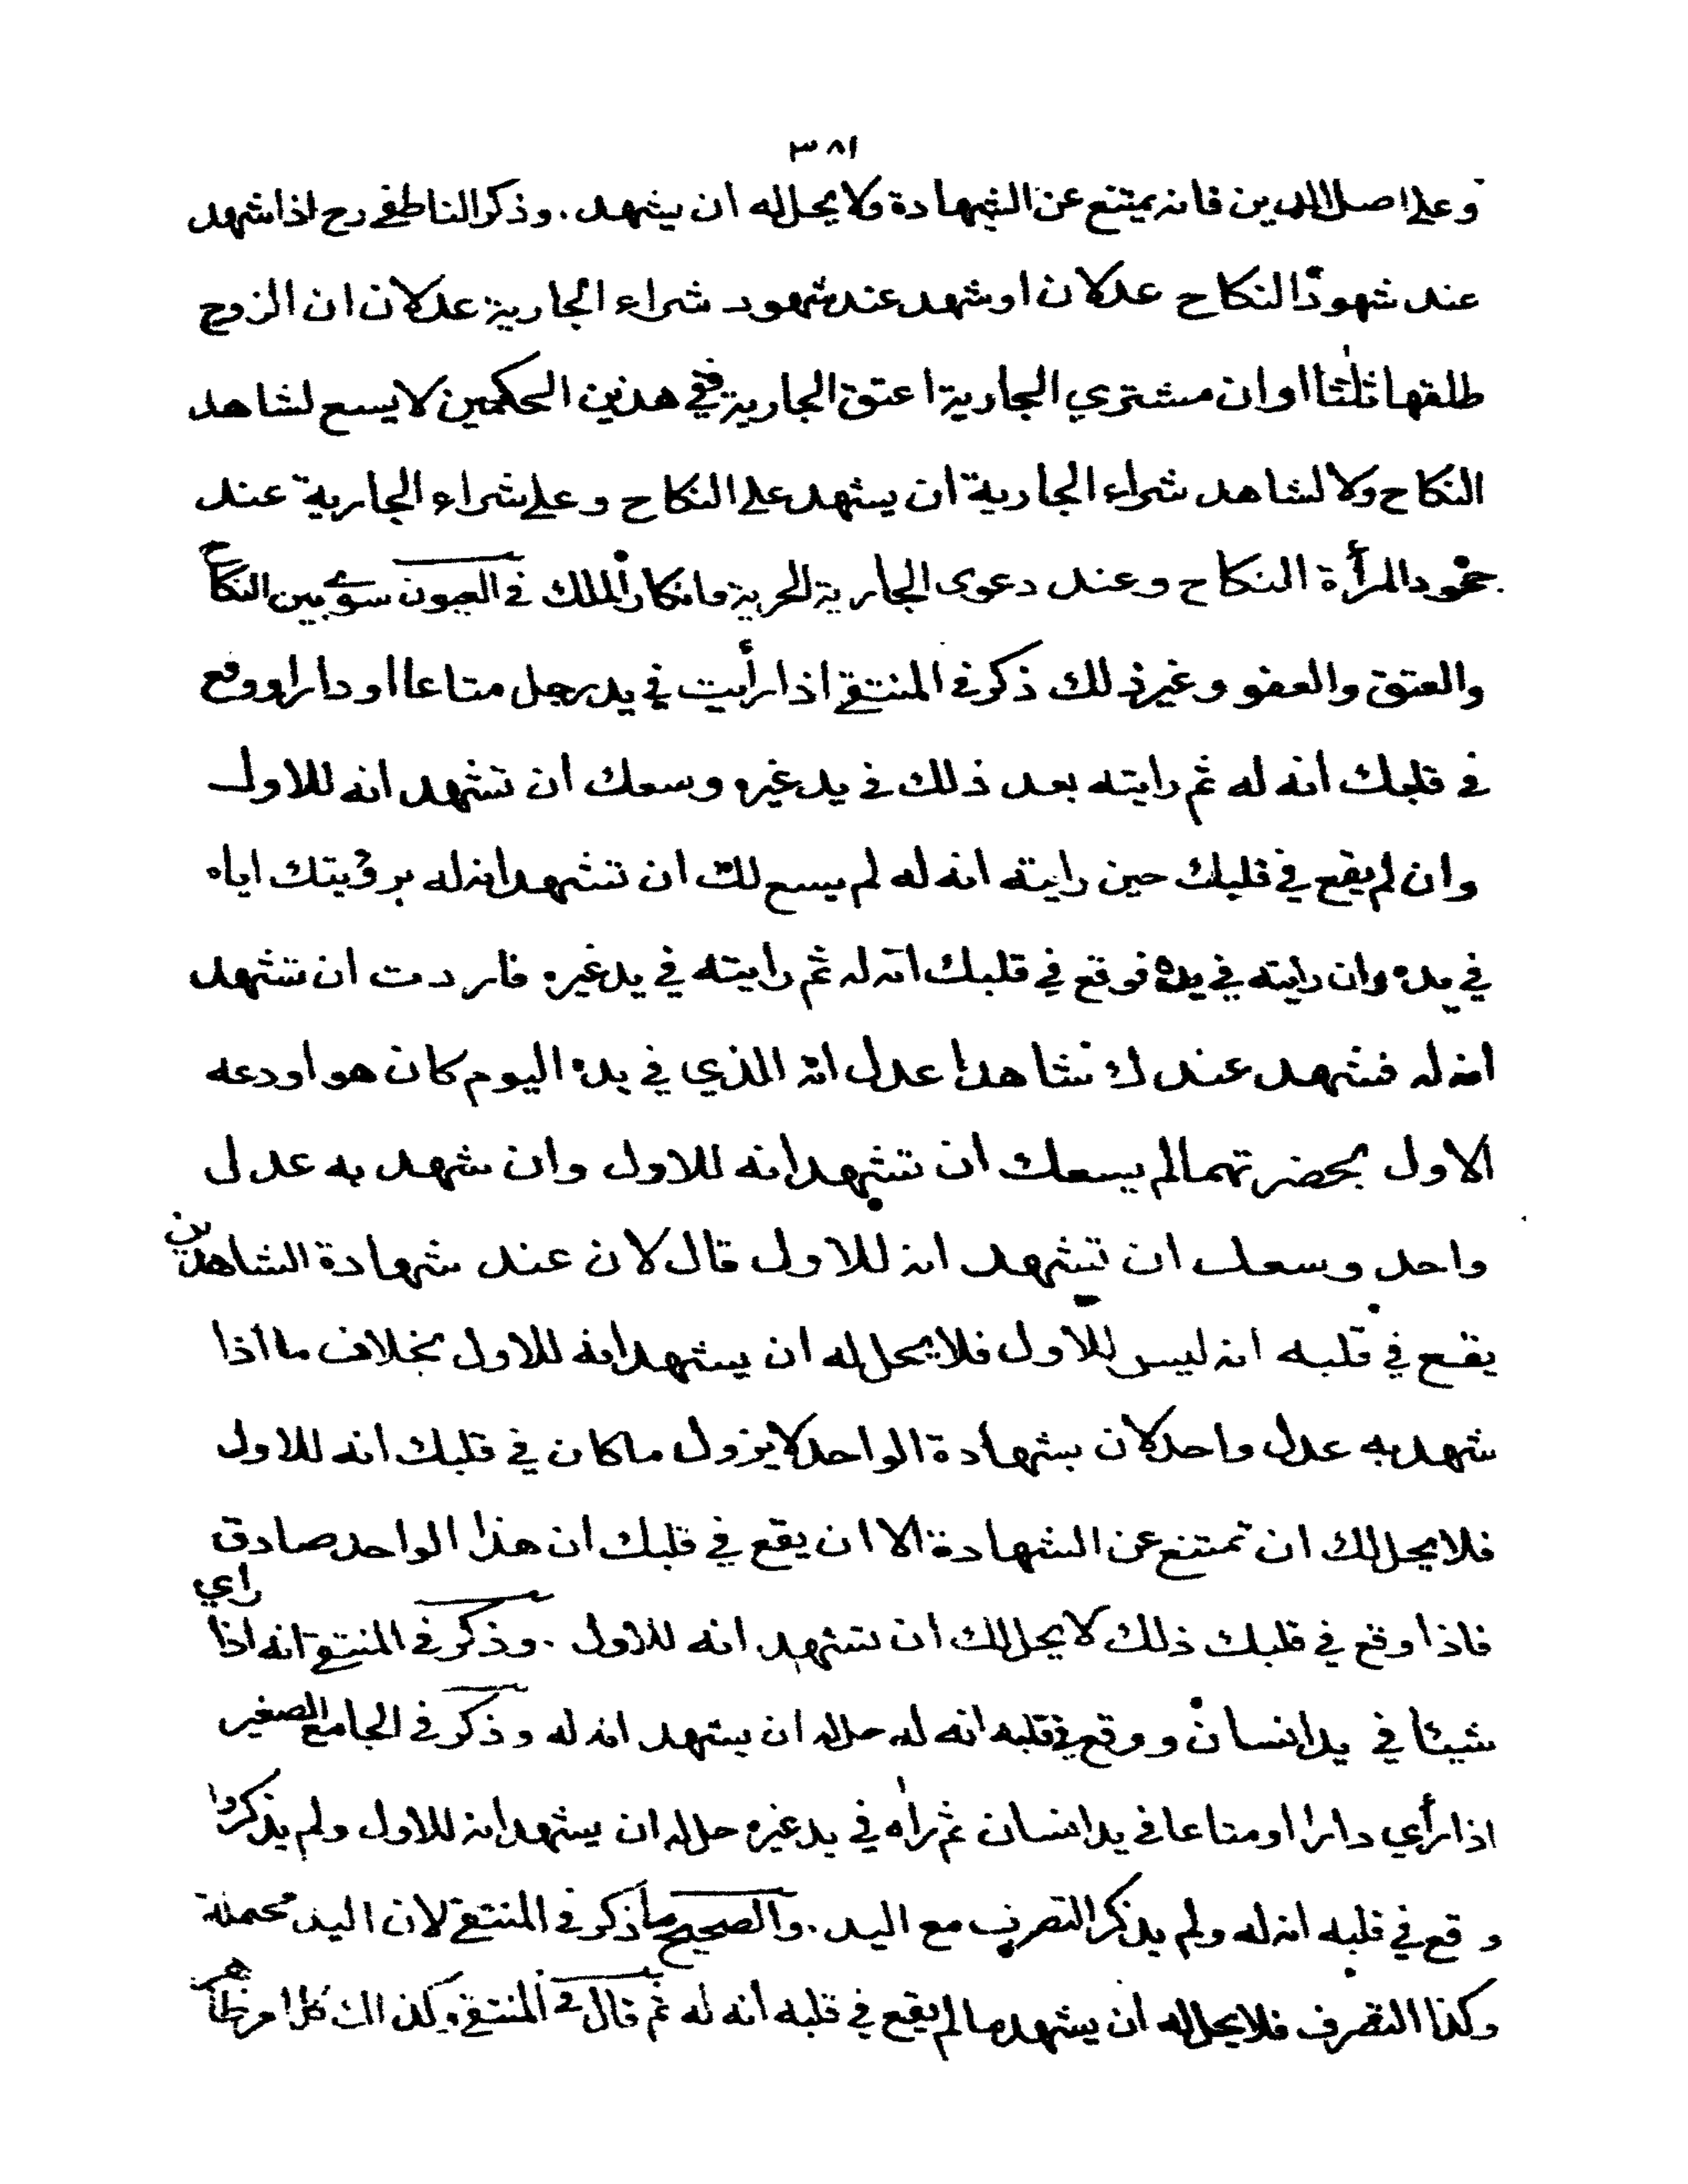 ٣٨١
وعلى اصل الدين فانه يمتنع عن الشهادة ولا يحل له ان يشهد . وذكر الناطفي رح اذا شهد
عند شهود النكاح عدلان او شهد عند شهود شراء الجارية عدلان ان الزوج
طلقها ثلثا او ان مشتري الجارية اعتق الجارية ففي هذين الحكمين لا يسع لشاهد
النكاح ولا لشاهد شراء الجارية ان يشهد على النكاح وعلى شراء الجارية عند
جحود المرأة النكاح وعند دعوى الجارية الحرية وانكار الملك في العيون سوى بين النكاح
والعتق والعفو وغير ذلك ذكر في المنتقى اذا رأيت في يد رجل متاعا او دارا ووقع
في قلبك انه له ثم رايته بعد ذلك في يد غيره وسعك ان تشهد انه للاول
وان لم يقع في قلبك حين رايته انه له لم يسع لك ان تشهد انه له برؤيتك اياه
في يده وان رايته في يده فوقع في قلبك انه له ثم رايته في يد غيره فاردت ان تشهد
انه له فشهد عندك شاهدا عدل انه الذي في يده اليوم كان هو اودعه
الاول بحضرتهما لم يسعك ان تشهد انه للاول وان شهد به عدل
واحد وسعك ان تشهد انه للاول قال لان عند شهادة الشاهدين
يقع في قلبه انه ليس للاول فلا يحل له ان يشهد انه للاول بخلاف ما اذا
شهد به عدل واحد لان بشهادة الواحد لا يزول ما كان في قلبك انه للاول
فلا يحل لك ان تمتنع عن الشهادة الا ان يقع في قلبك ان هذا الواحد صادق
فاذا وقع في قلبك ذلك لا يحل لك ان تشهد انه للاول . وذكر في المنتقى انه اذا راي
شيئا في يد انسان ووقع في قلبه انه له حل له ان يشهد انه له وذكر في الجامع الصغير
اذا رأي دارا او متاعا في يد انسان ثم راه في يد غيره حل له ان يشهد انه للاول ولم يذكروا
وقع في قلبه انه له ولم يذكر التصرف مع اليد . والصحيح ما ذكر في المنتقى لان اليد محتملة
وكذا التصرف فلا يحل له ان يشهد ما لم يقع في قلبه انه له ثم قال في المنتقى وكذلك كل امر ظاهر